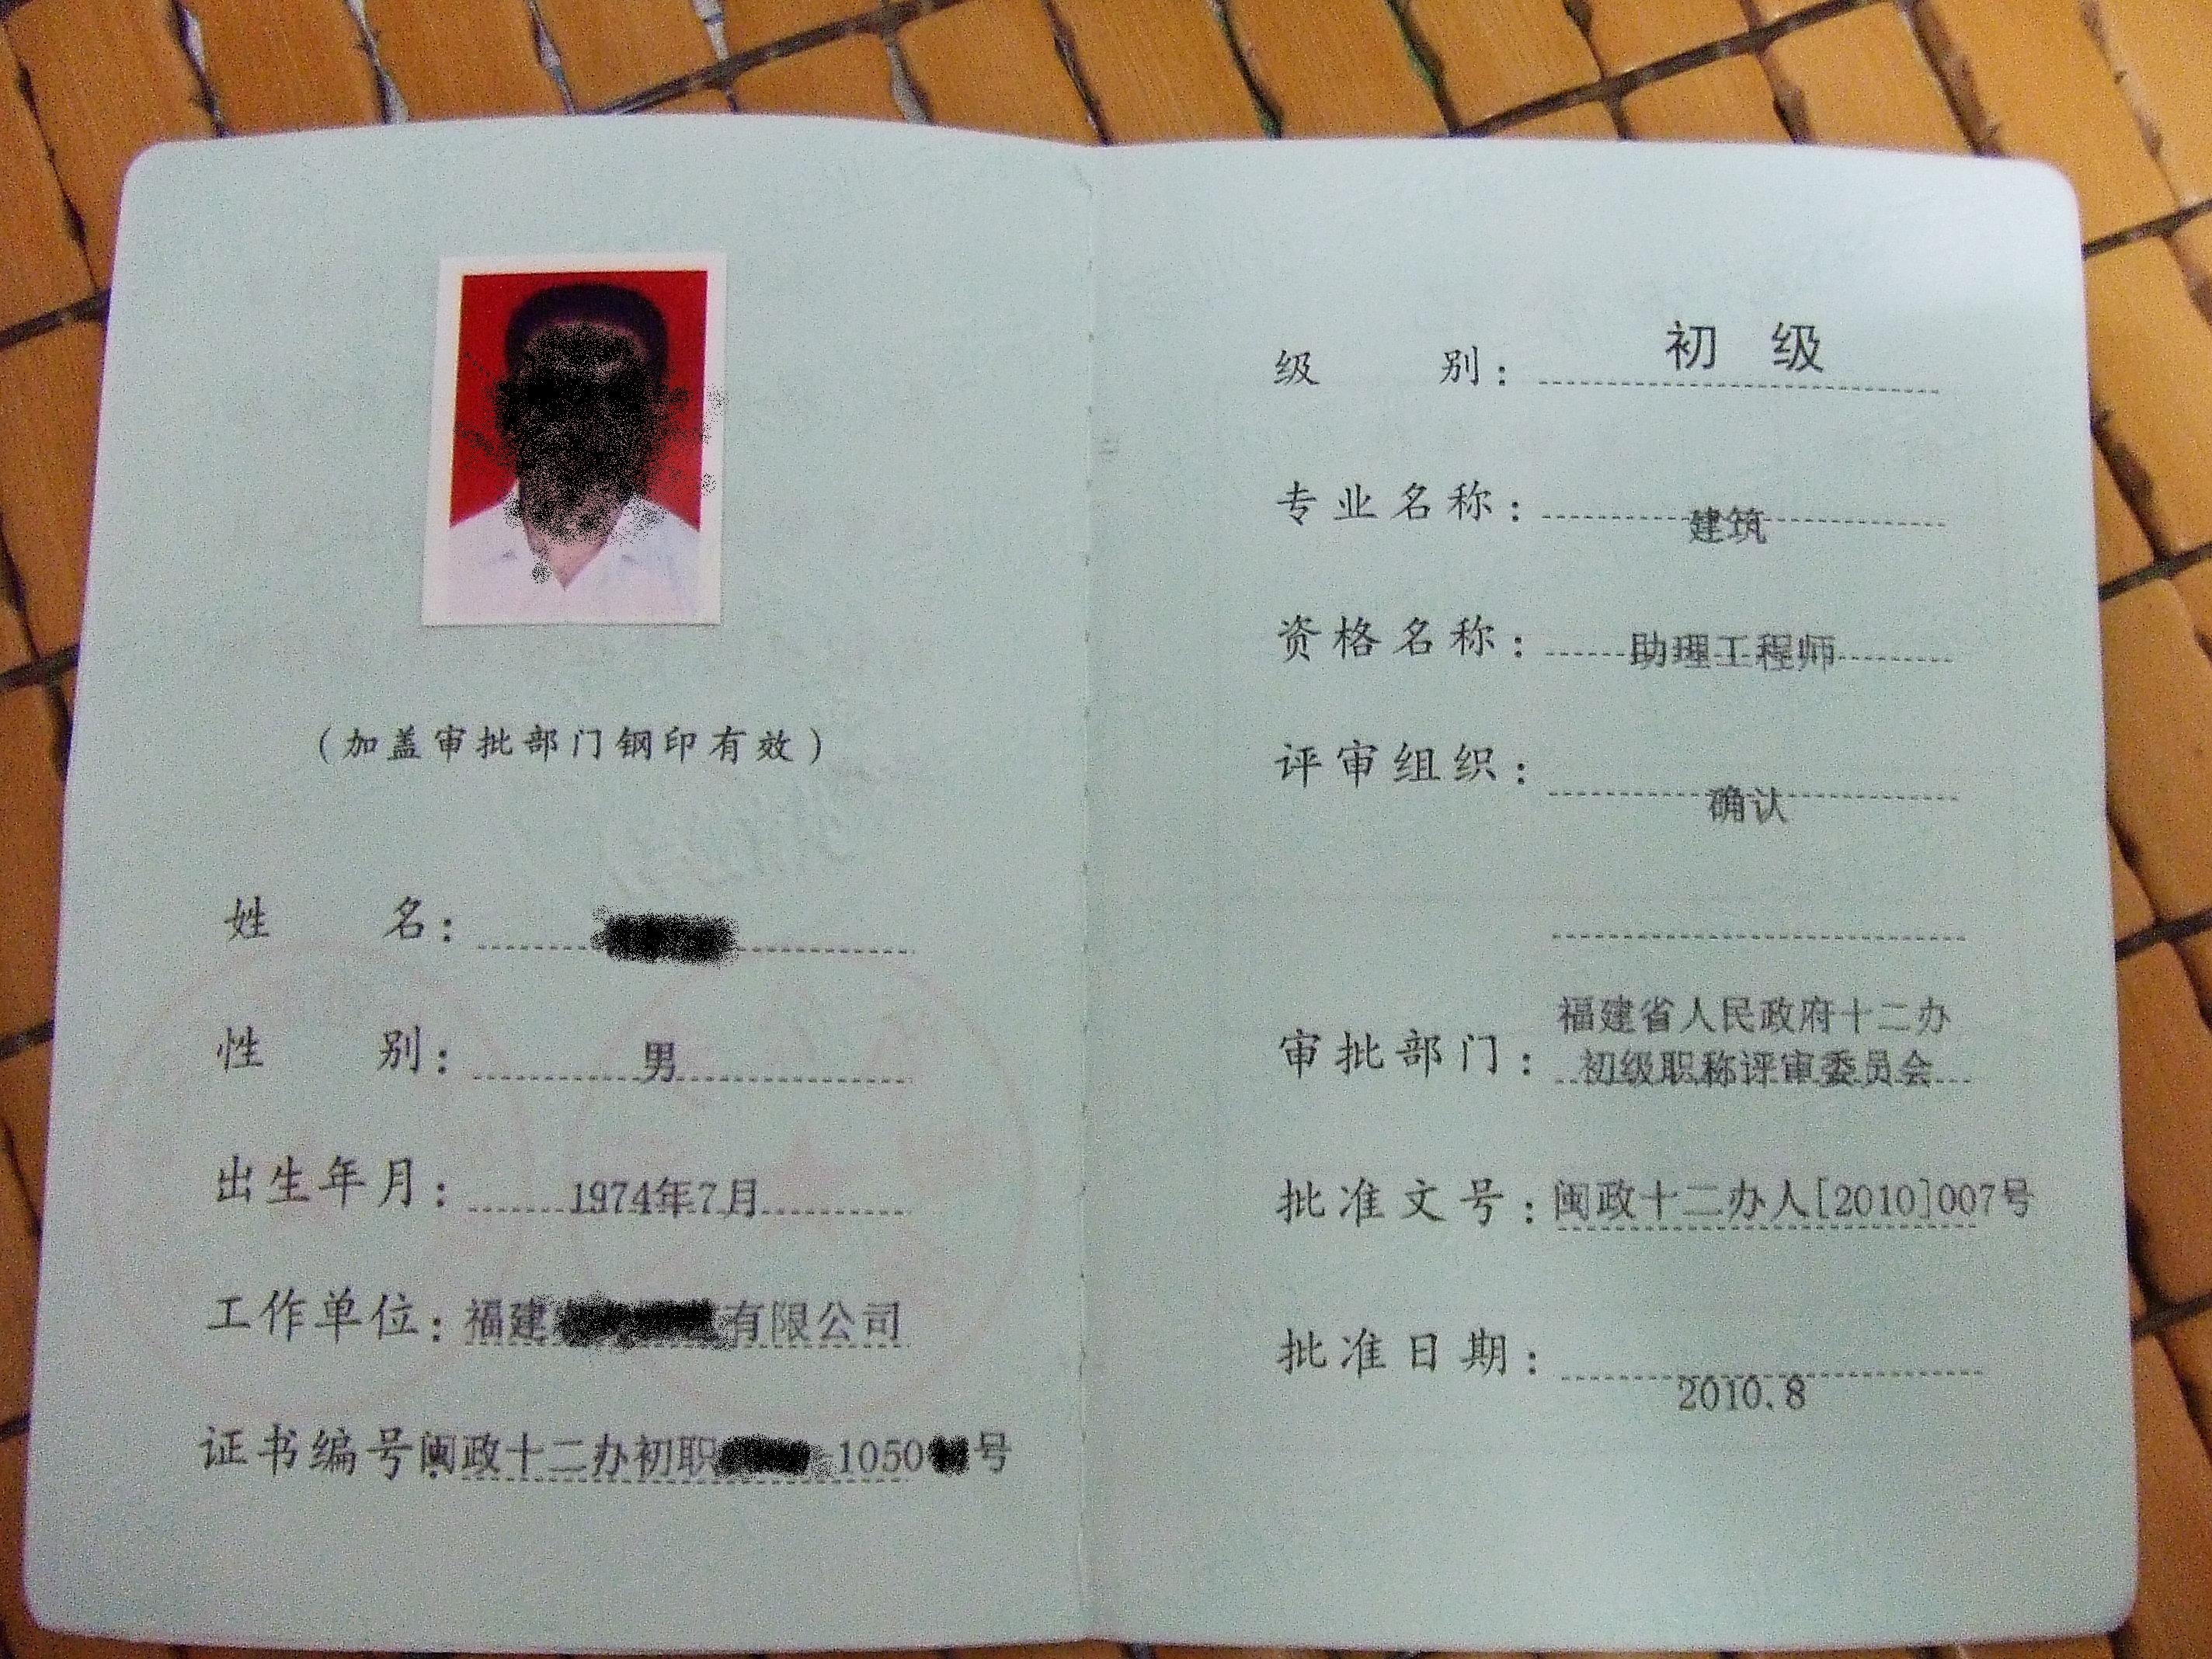 (加盖审批部门钢印有效)
姓名:
性别:男
出生年月:1974年7月
工作单位:福建 有限公司
证书编号闽政十二办初职 1050 号
级别:初级
专业名称:建筑
资格名称:助理工程师
评审组织:
确认
福建省人民政府十二办
审批部门:初级职称评审委员会
批准文号:闽政十二办人[2010]007号
批准日期:
2010.8